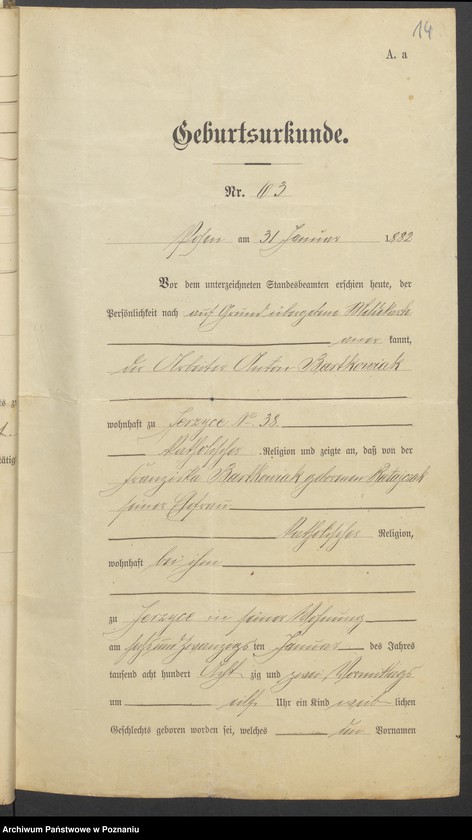 14
A. a
Geburtsurkunde.
Nr. 63
Posen am 31 Januar 1882
Vor dem unterzeichneten Standesbeamten erschien heute, der
Persönlichkeit nach auf Grund übergebene Meldekarte
aner kannt,
der Arbeiter Anton Bartkowiak
wohnhaft zu Jerzyce No 38.
katholischer Religion und zeigte an, daß von der
Franziska Bartkowiak geborenen Ratajczak
seiner Ehefrau
katholischer Religion,
wohnhaft bei ihm
zu Jerzyce in seiner Wohnung
am sechs und zwanzigs ten Januar des Jahres
tausend acht hundert Acht zig und zwei Vormittags
um elf Uhr ein Kind weib lichen
Geschlechts geboren worden sei, welches den Vornamen
Archiwum Państwowe w Poznaniu